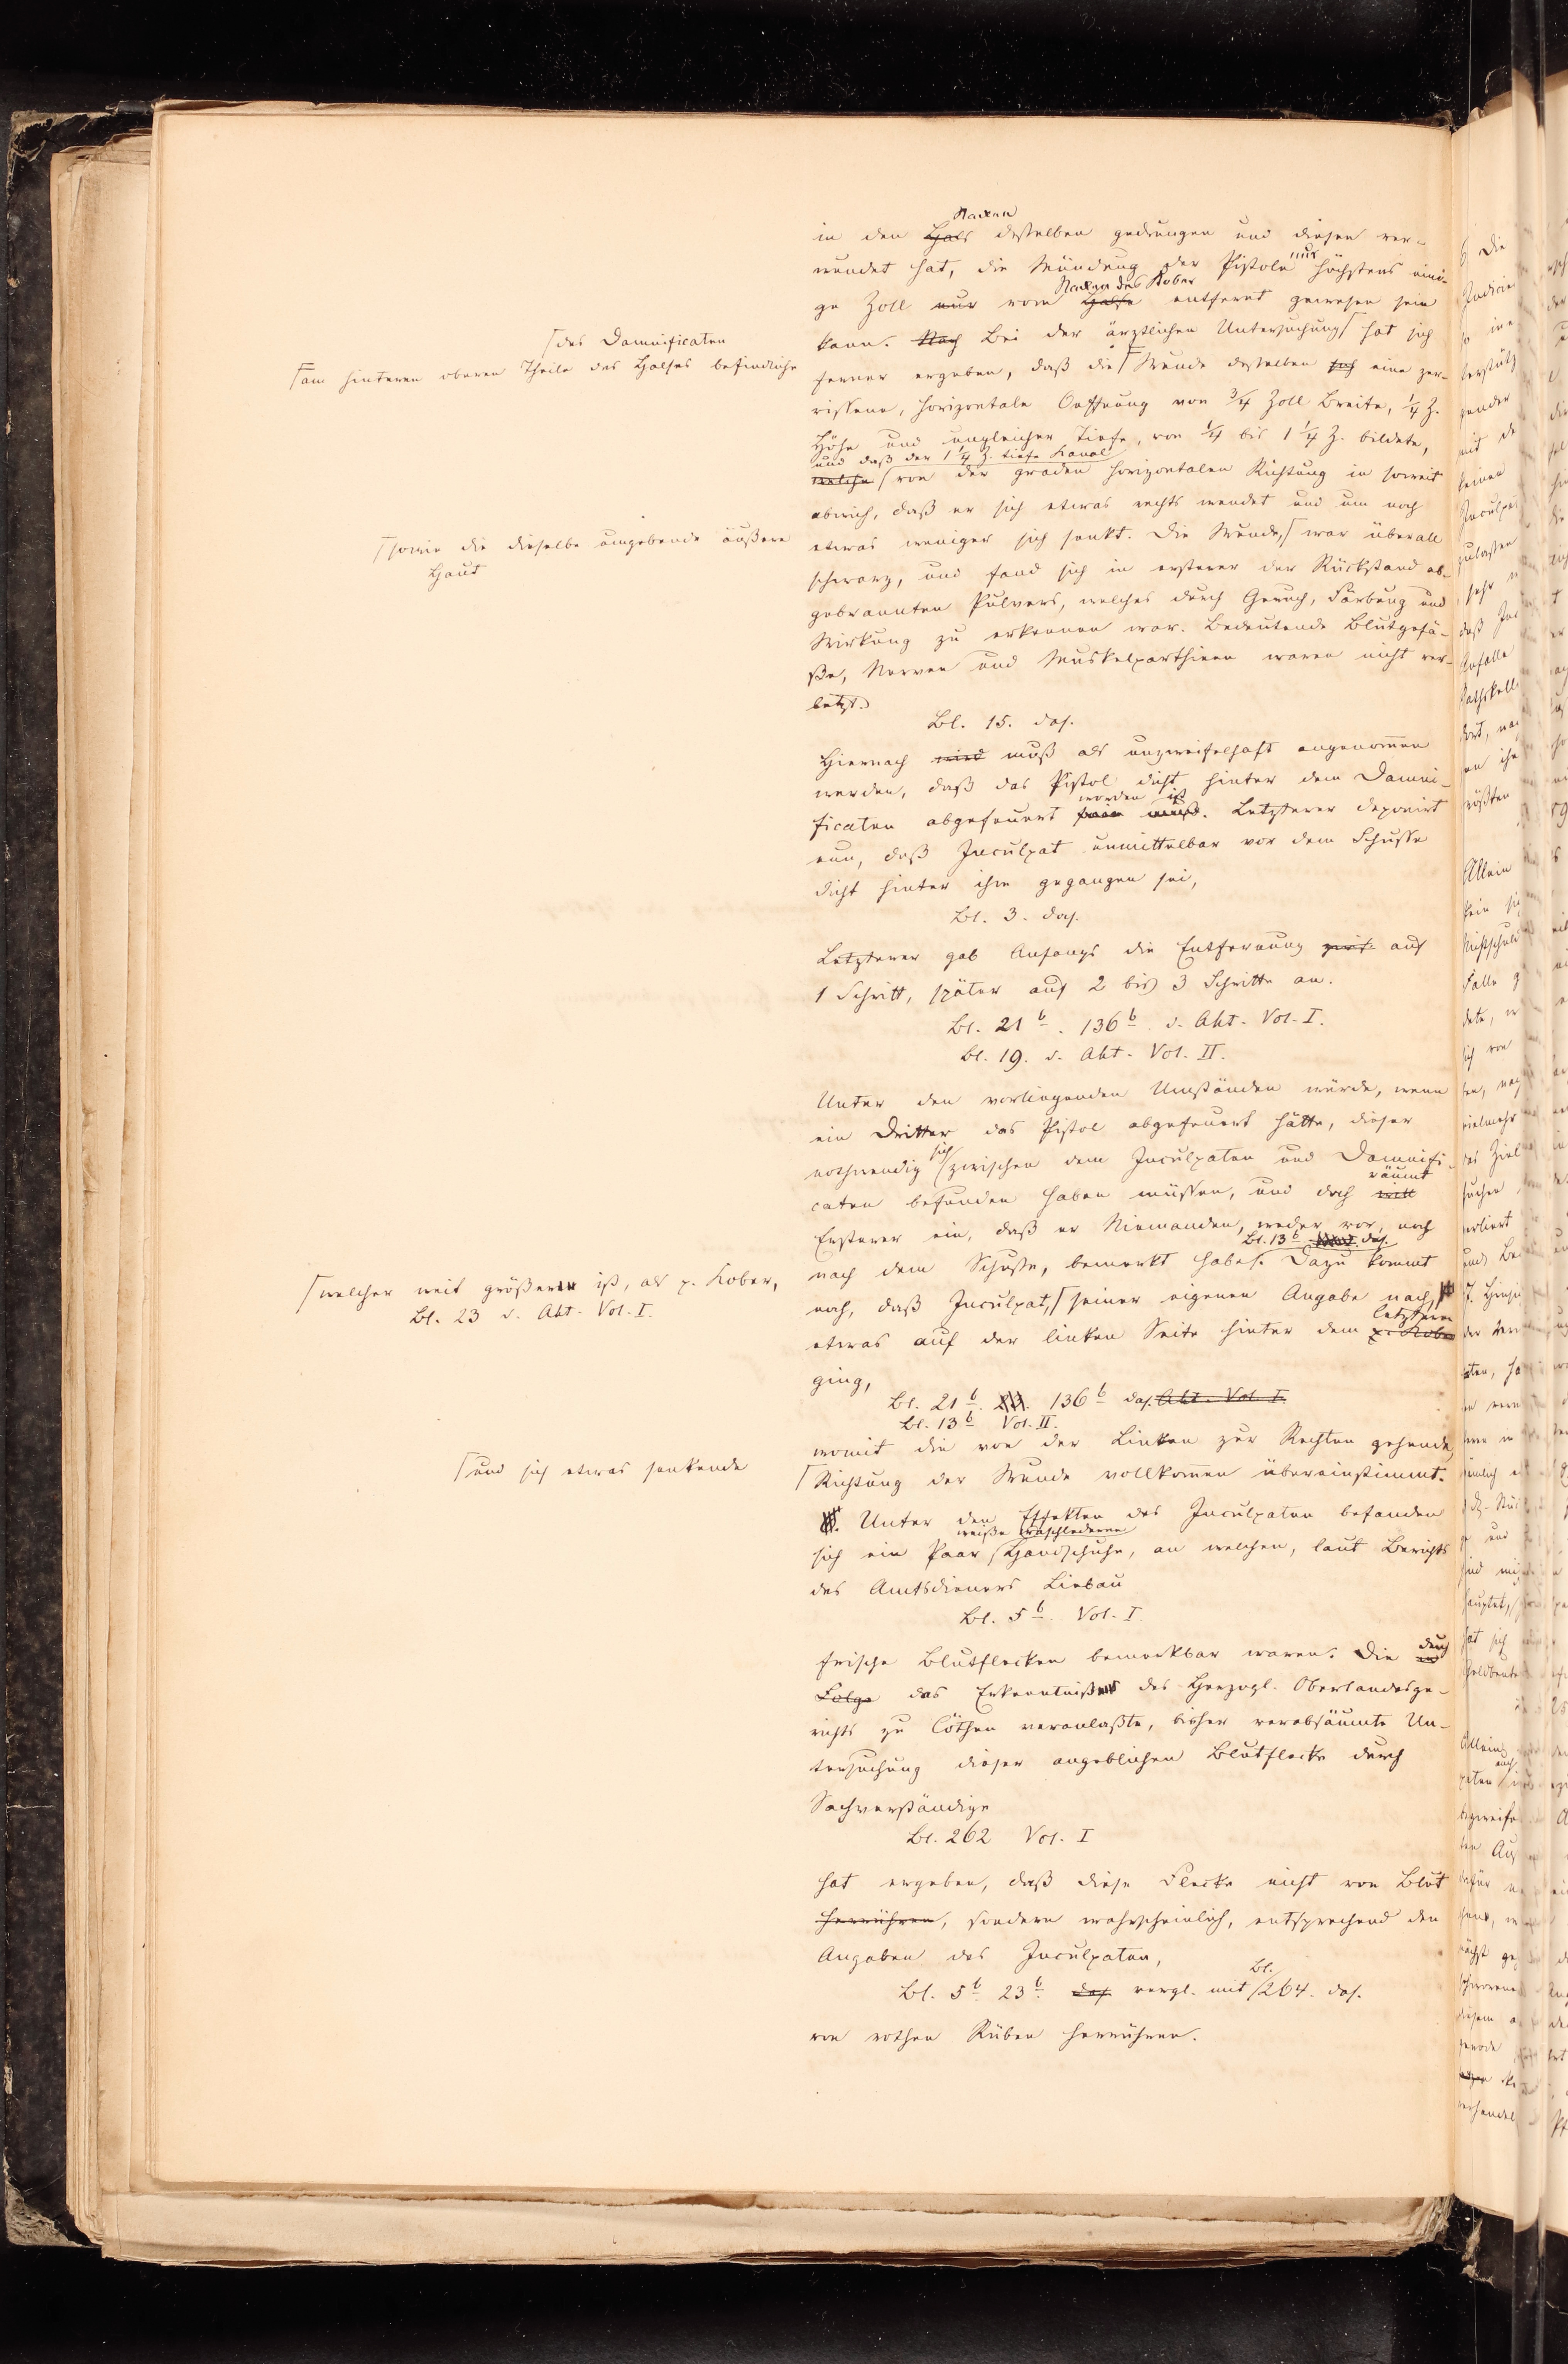 Nacken
in den Hals desselben gedrungen und diesen ver-
wundet hat, die Mündung der Pistole nur höchstens eini-
ge Zoll nur vom Halse Nacken des Kober entfernt gewesen sein
kann. Nach Bei der ärztlichen Untersuchung hat sich
⌈des Damnificaten
ferner ergeben, daß die ⌈Wunde desselben sich eine zer-
⌈am hinteren oberen Theile des Halses befindliche
rissene, horizontale Oeffnung von 3/4 Zoll Breite, 1/4 Z.
Höhe und ungleicher Tiefe, von 1/4 bis 1 1/4 Z. bildete,
und daß der 1 1/4 Z. tiefe Kanal
welche von der graden horizontalen Richtung in soweit
abwich, daß er sich etwas rechts wendet und um noch
etwas weniger sich senkt. Die Wunde, ⌈war überall
⌈sowie die dieselbe umgebende äußere
Haut
schwarz, und fand sich in ersterer der Rückstand ab-
gebrannten Pulvers, welches durch Geruch, Färbung und
Wirkung zu erkennen war. Bedeutende Blutgefä-
ße, Nerven und Muskelparthieen waren nicht ver-
letzt.
Bl. 15. das.
Hiernach wird muß als unzweifelhaft angenommen
werden, daß das Pistol dicht hinter dem Damni-
worden ist
ficaten abgefeuert sein muß. Letzterer deponirt
nun, daß Inculpat unmittelbar vor dem Schusse
dicht hinter ihm gegangen sei,
Bl. 3. das.
Letzterer gab Anfangs die Entfernung auf
1 Schritt, später auf 2 bis 3 Schritte an.
Bl. 21 b. 136 b. d. Akt. Vol. I.
Bl. 19. d. Akt. Vol. II.
Unter den vorliegenden Umständen würde, wenn
ein Dritter das Pistol abgefeuert hätte, dieser
nothwendig sich zwischen dem Inculpaten und Damnifi-
räumt
caten befunden haben müssen, und doch will
Ersterer ein, daß er Niemanden, weder vor, noch
Bl. 13 b das.
nach dem Schusse, bemerkt habe. Dazu kommt
noch, daß Inculpat, ⌈seiner eigenen Angabe nach,
⌈welcher weit größer ist, als p. Kober,
Bl. 23 d. Akt. Vol. I.
letzteren
etwas auf der linken Seite hinter dem p. Kober
ging,
Bl. 21 b. 23. 136 b das. Akt. Vol. I.
Bl. 13 b Vol. II.
womit die von der Linken zur Rechten gehende
⌈und sich etwas senkende
⌈Richtung der Wunde vollkommen übereinstimmt.
Unter den Effekten des Inculpaten befanden
weiße waschlederne
sich ein Paar Handschuhe, an welchen, laut Berichts
des Amtsdieners Liebau
Bl. 5 b. Vol. I
frische Blutflecken bemerkbar waren. Die durch
Folge das Erkenntniß des Herzogl. Oberlandesge-
richts zu Cöthen veranlaßte, bisher verabsäumte Un-
tersuchung dieser angeblichen Blutflecke durch
Sachverständige
Bl. 262 Vol. I
hat ergeben, daß diese Flecke nicht von Blut
herrühren, sondern wahrscheinlich, entsprechend den
Angaben des Inculpaten,
Bl. 5 b. 23 b. das. vergl. mit Bl. 264. das.
von rothen Rüben herrühren.